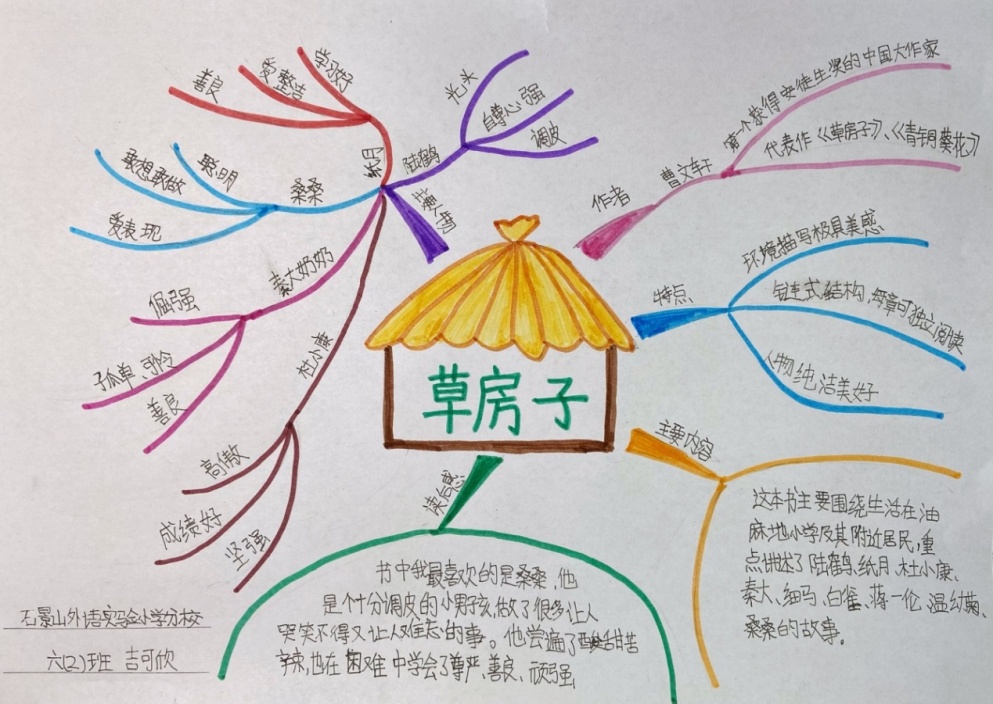 草房子
主要人物
纸月
学习好
爱整洁
善良
陆鹤
光头
自尊心强
调皮
桑桑
聪明
敢想敢做
爱表现
秦大奶奶
倔强
孤单、可怜
善良
杜小康
高傲
成绩好
坚强
作者
曹文轩
第一个获得安徒生奖的中国大作家
代表作《草房子》、《青铜葵花》
特点
环境描写极具美感
链连式结构,每章可独立阅读
人物纯洁美好
主要内容
这本书主要围绕生活在油
麻地小学及其附近居民,重
点讲述了陆鹤、纸月、杜小康、
秦大、细马、白雀、蒋一伦、温幼菊、
桑桑的故事。
读后感
书中我最喜欢的是桑桑,他
是个十分调皮的小男孩,做了很多让人
哭笑不得又让人难忘的事。他尝遍了酸甜苦
辣,也在困难中学会了尊严、善良、顽强
石景山外语实验小学分校
六(2)班 吉可欣